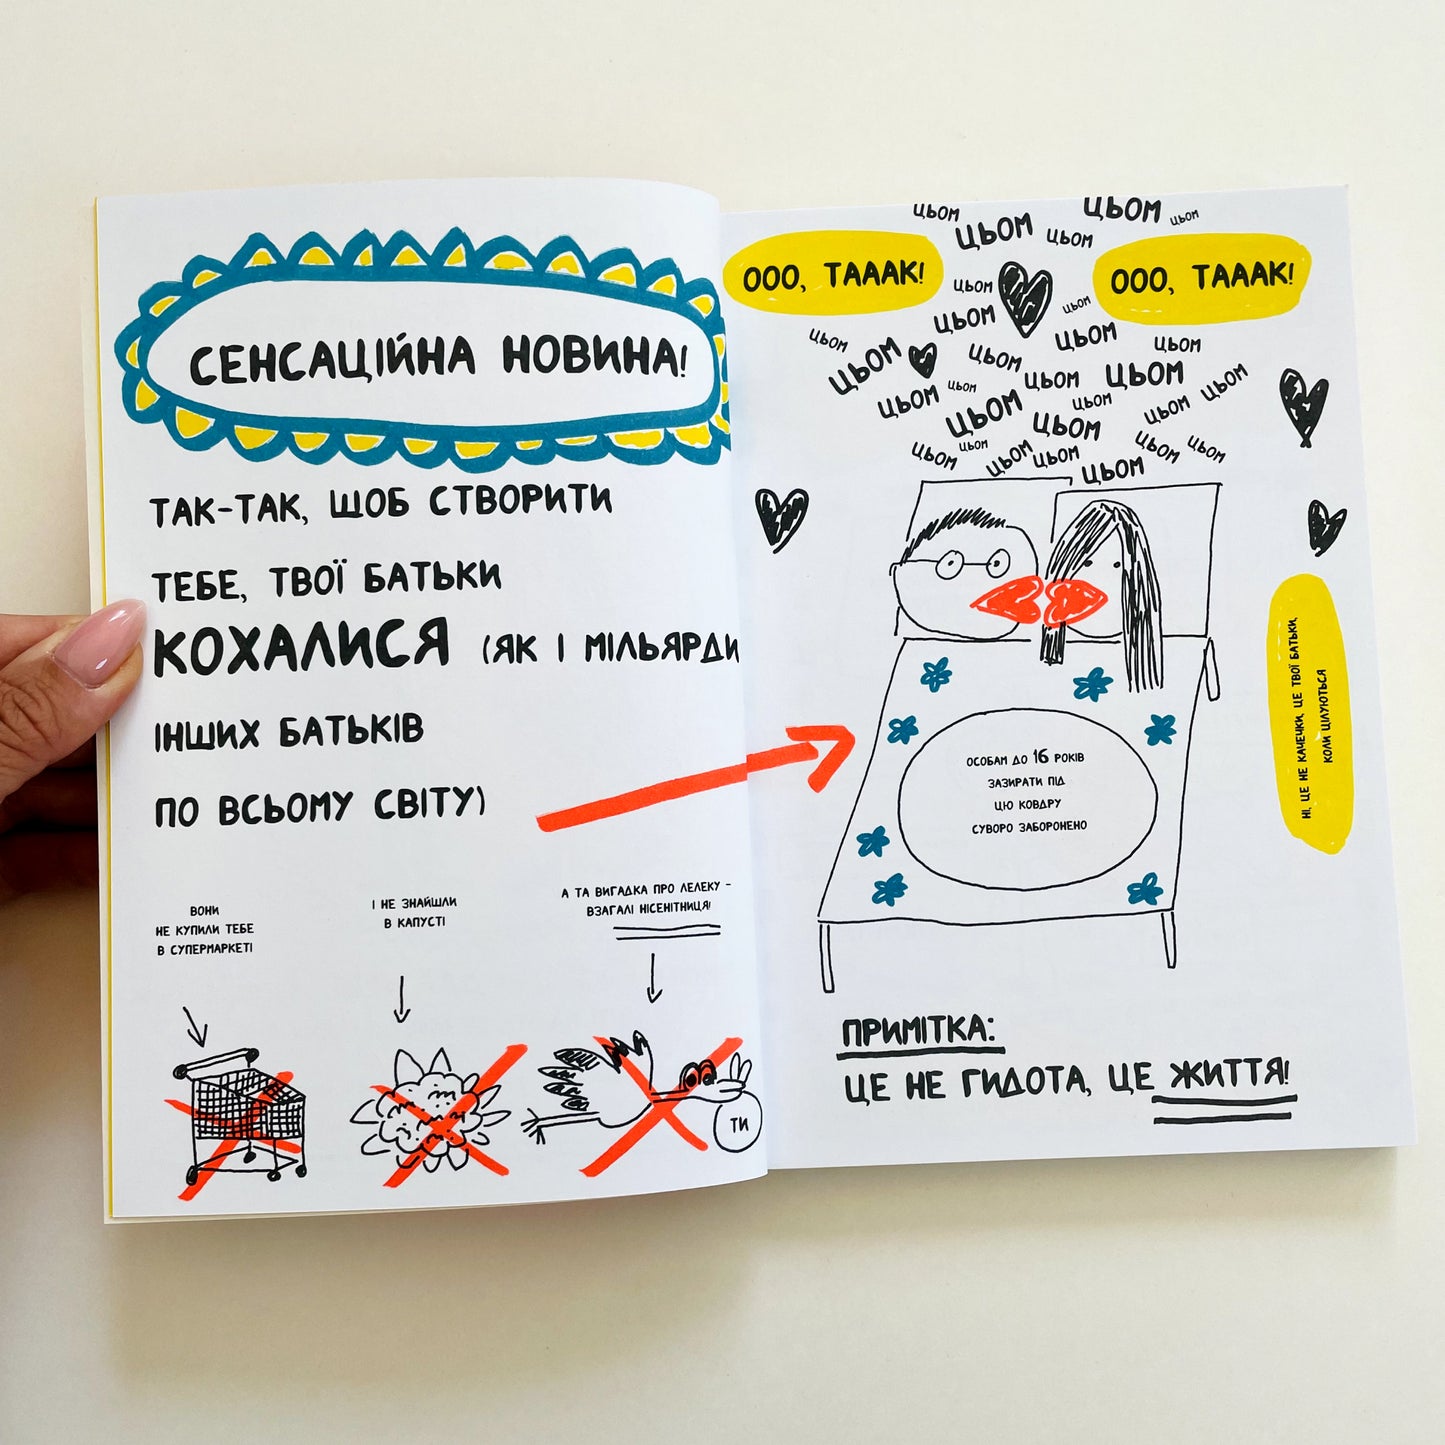 СЕНСАЦІЙНА НОВИНА!
ТАК-ТАК, ЩОБ СТВОРИТИ
ТЕБЕ, ТВОЇ БАТЬКИ
КОХАЛИСЯ (ЯК І МІЛЬЯРДИ
ІНШИХ БАТЬКІВ
ПО ВСЬОМУ СВІТУ)
ВОНИ
НЕ КУПИЛИ ТЕБЕ
В СУПЕРМАРКЕТІ
І НЕ ЗНАЙШЛИ
В КАПУСТІ
А ТА ВИГАДКА ПРО ЛЕЛЕКУ –
ВЗАГАЛІ НІСЕНІТНИЦЯ!
ТИ
ЦЬОМ ЦЬОМ ЦЬОМ
ЦЬОМ ЦЬОМ
ООО, ТАААК!
ООО, ТАААК!
ЦЬОМ ЦЬОМ
ЦЬОМ ЦЬОМ
ЦЬОМ ЦЬОМ ЦЬОМ ЦЬОМ
ЦЬОМ ЦЬОМ ЦЬОМ ЦЬОМ
ЦЬОМ ЦЬОМ ЦЬОМ ЦЬОМ
ЦЬОМ ЦЬОМ ЦЬОМ ЦЬОМ
ЦЬОМ ЦЬОМ ЦЬОМ
ЦЬОМ
ОСОБАМ ДО 16 РОКІВ
ЗАЗИРАТИ ПІД
ЦЮ КОВДРУ
СУВОРО ЗАБОРОНЕНО
НІ, ЦЕ НЕ КАЧЕЧКИ, ЦЕ ТВОЇ БАТЬКИ,
КОЛИ ЦІЛУЮТЬСЯ
ПРИМІТКА:
ЦЕ НЕ ГИДОТА, ЦЕ ЖИТТЯ!